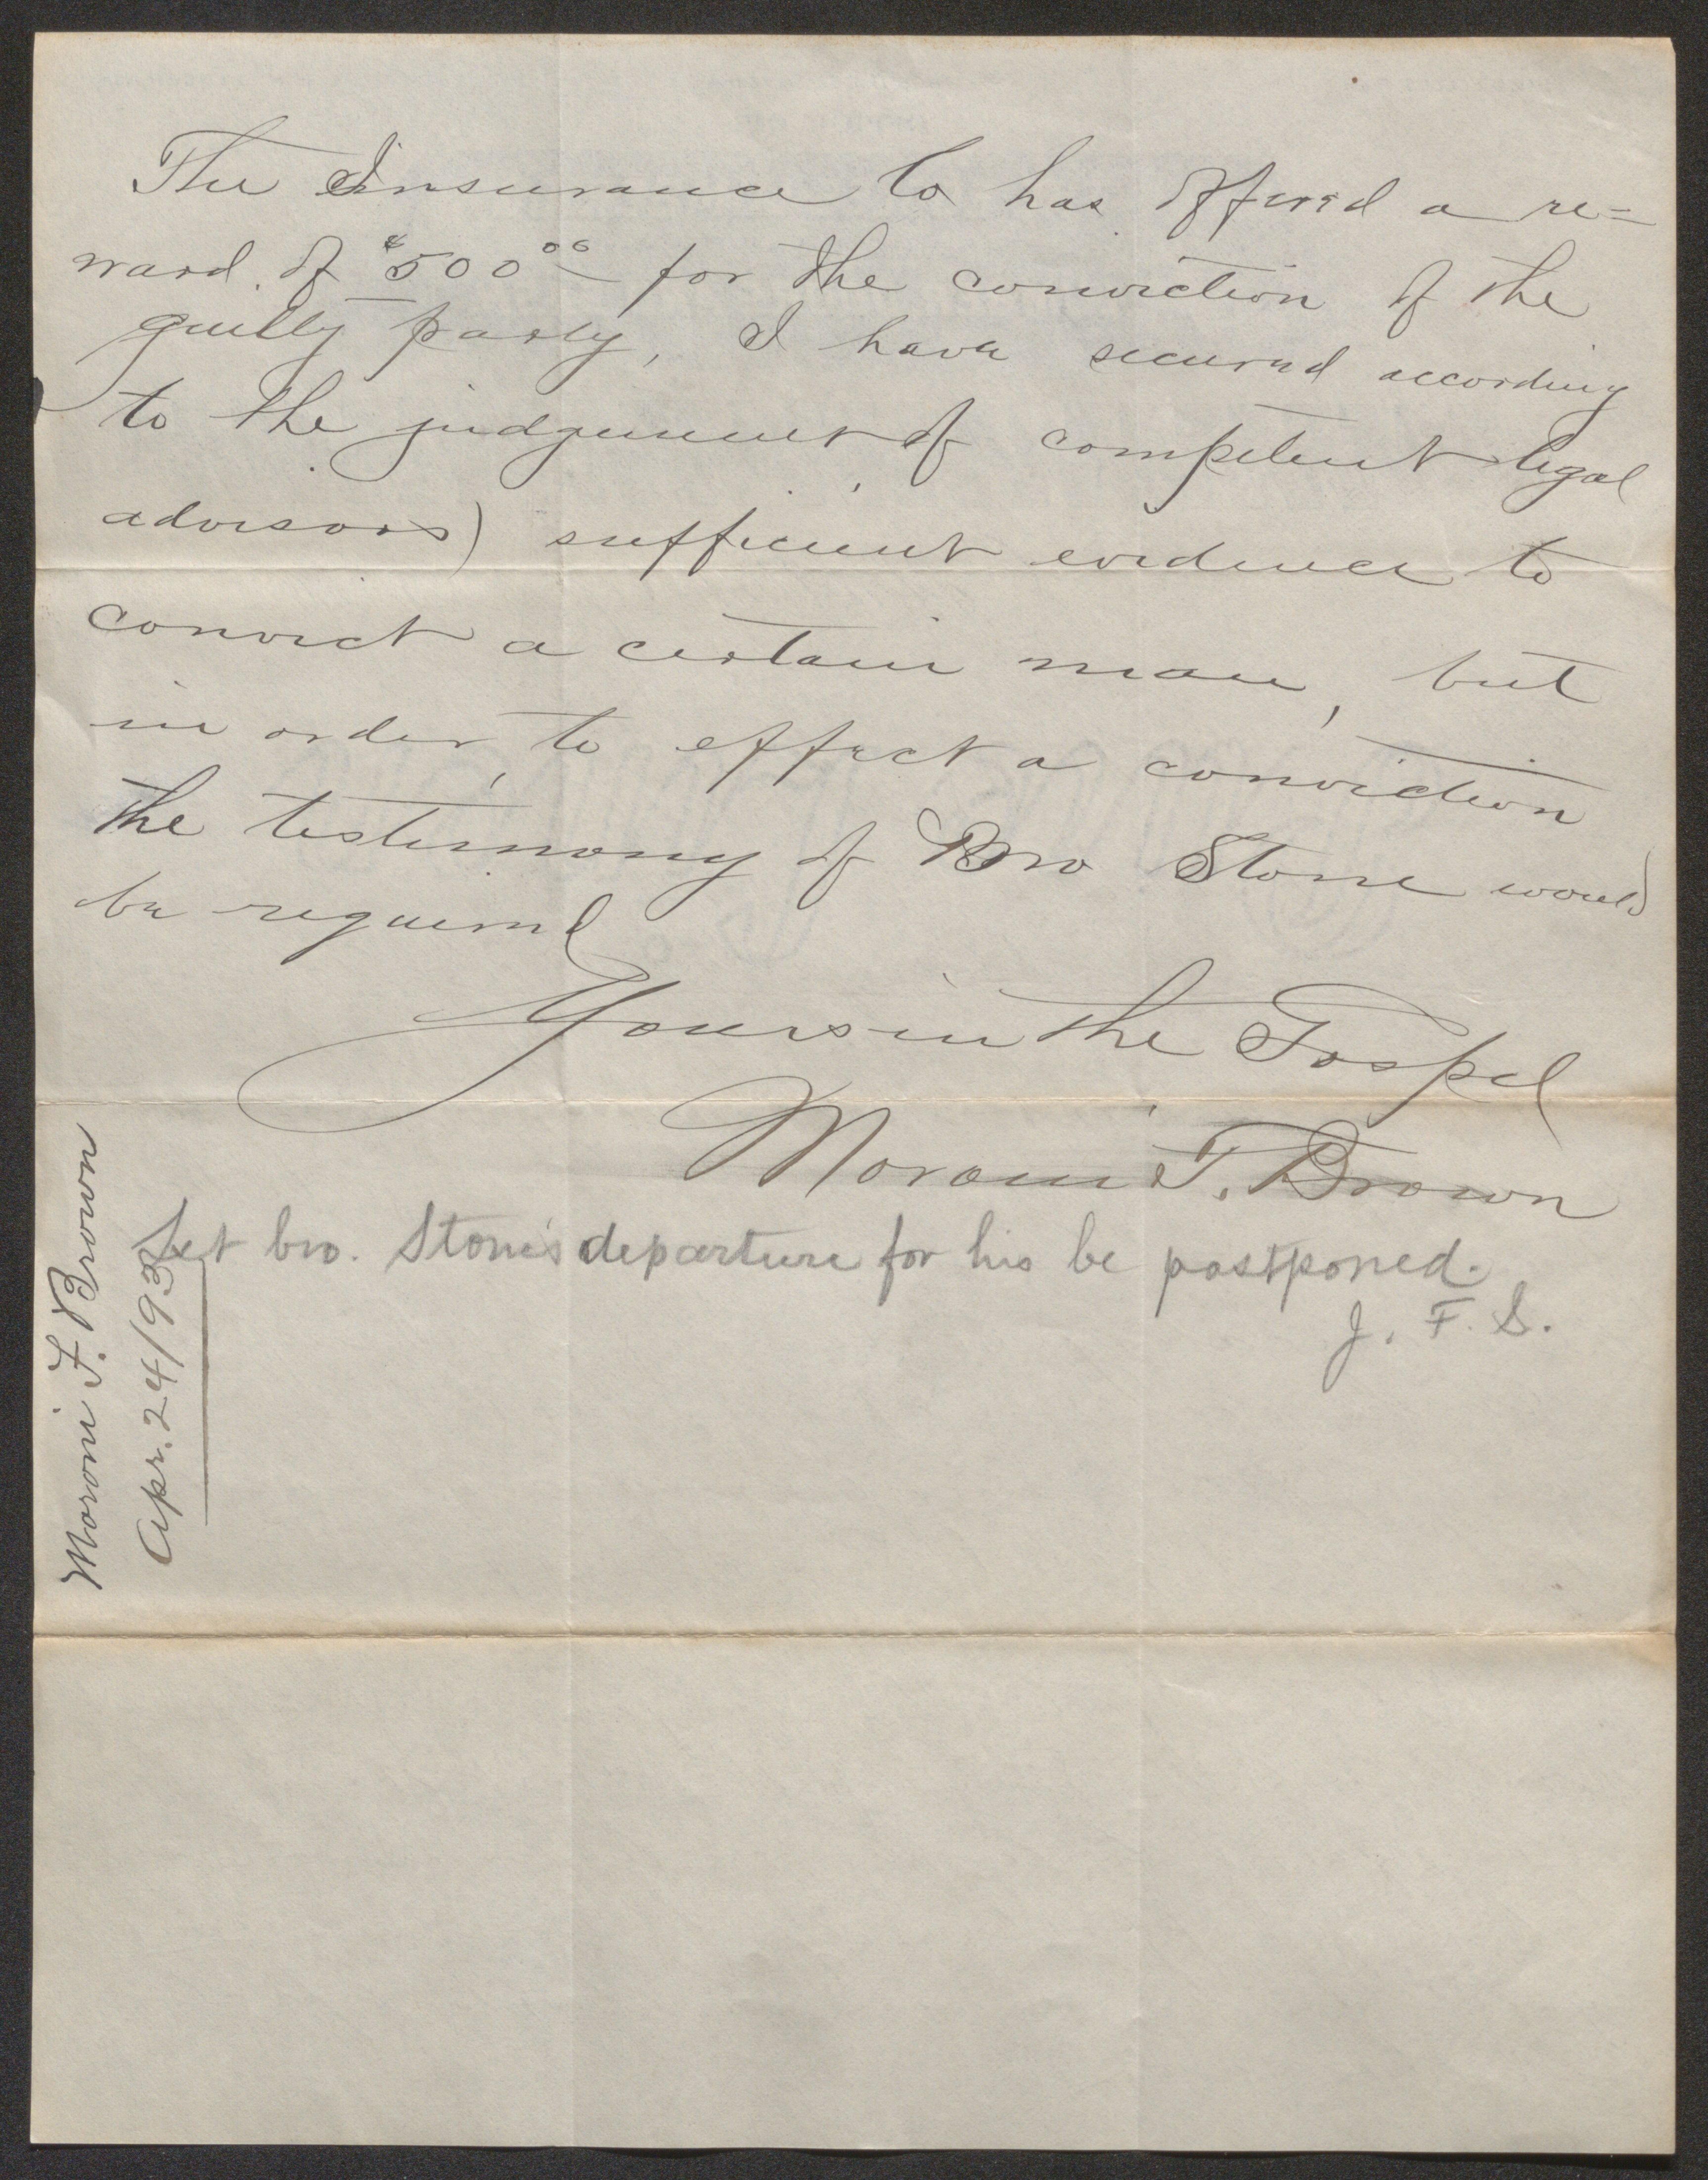 The Insurance Co has offered a re=
ward of $500 00 for the conviction of the
guilty party, I have secured according
to the judgement of competent legal
advisors) sufficient evidence to
convict a certain man, but
in order, to effect a conviction
the testimony of Bro Stone would
be required
Yours in the Gospel
Moroni F. Brown
Let bro. Stone's departure for his be postponed.
J. F. S.
Moroni F. Brown
Apr. 24/93